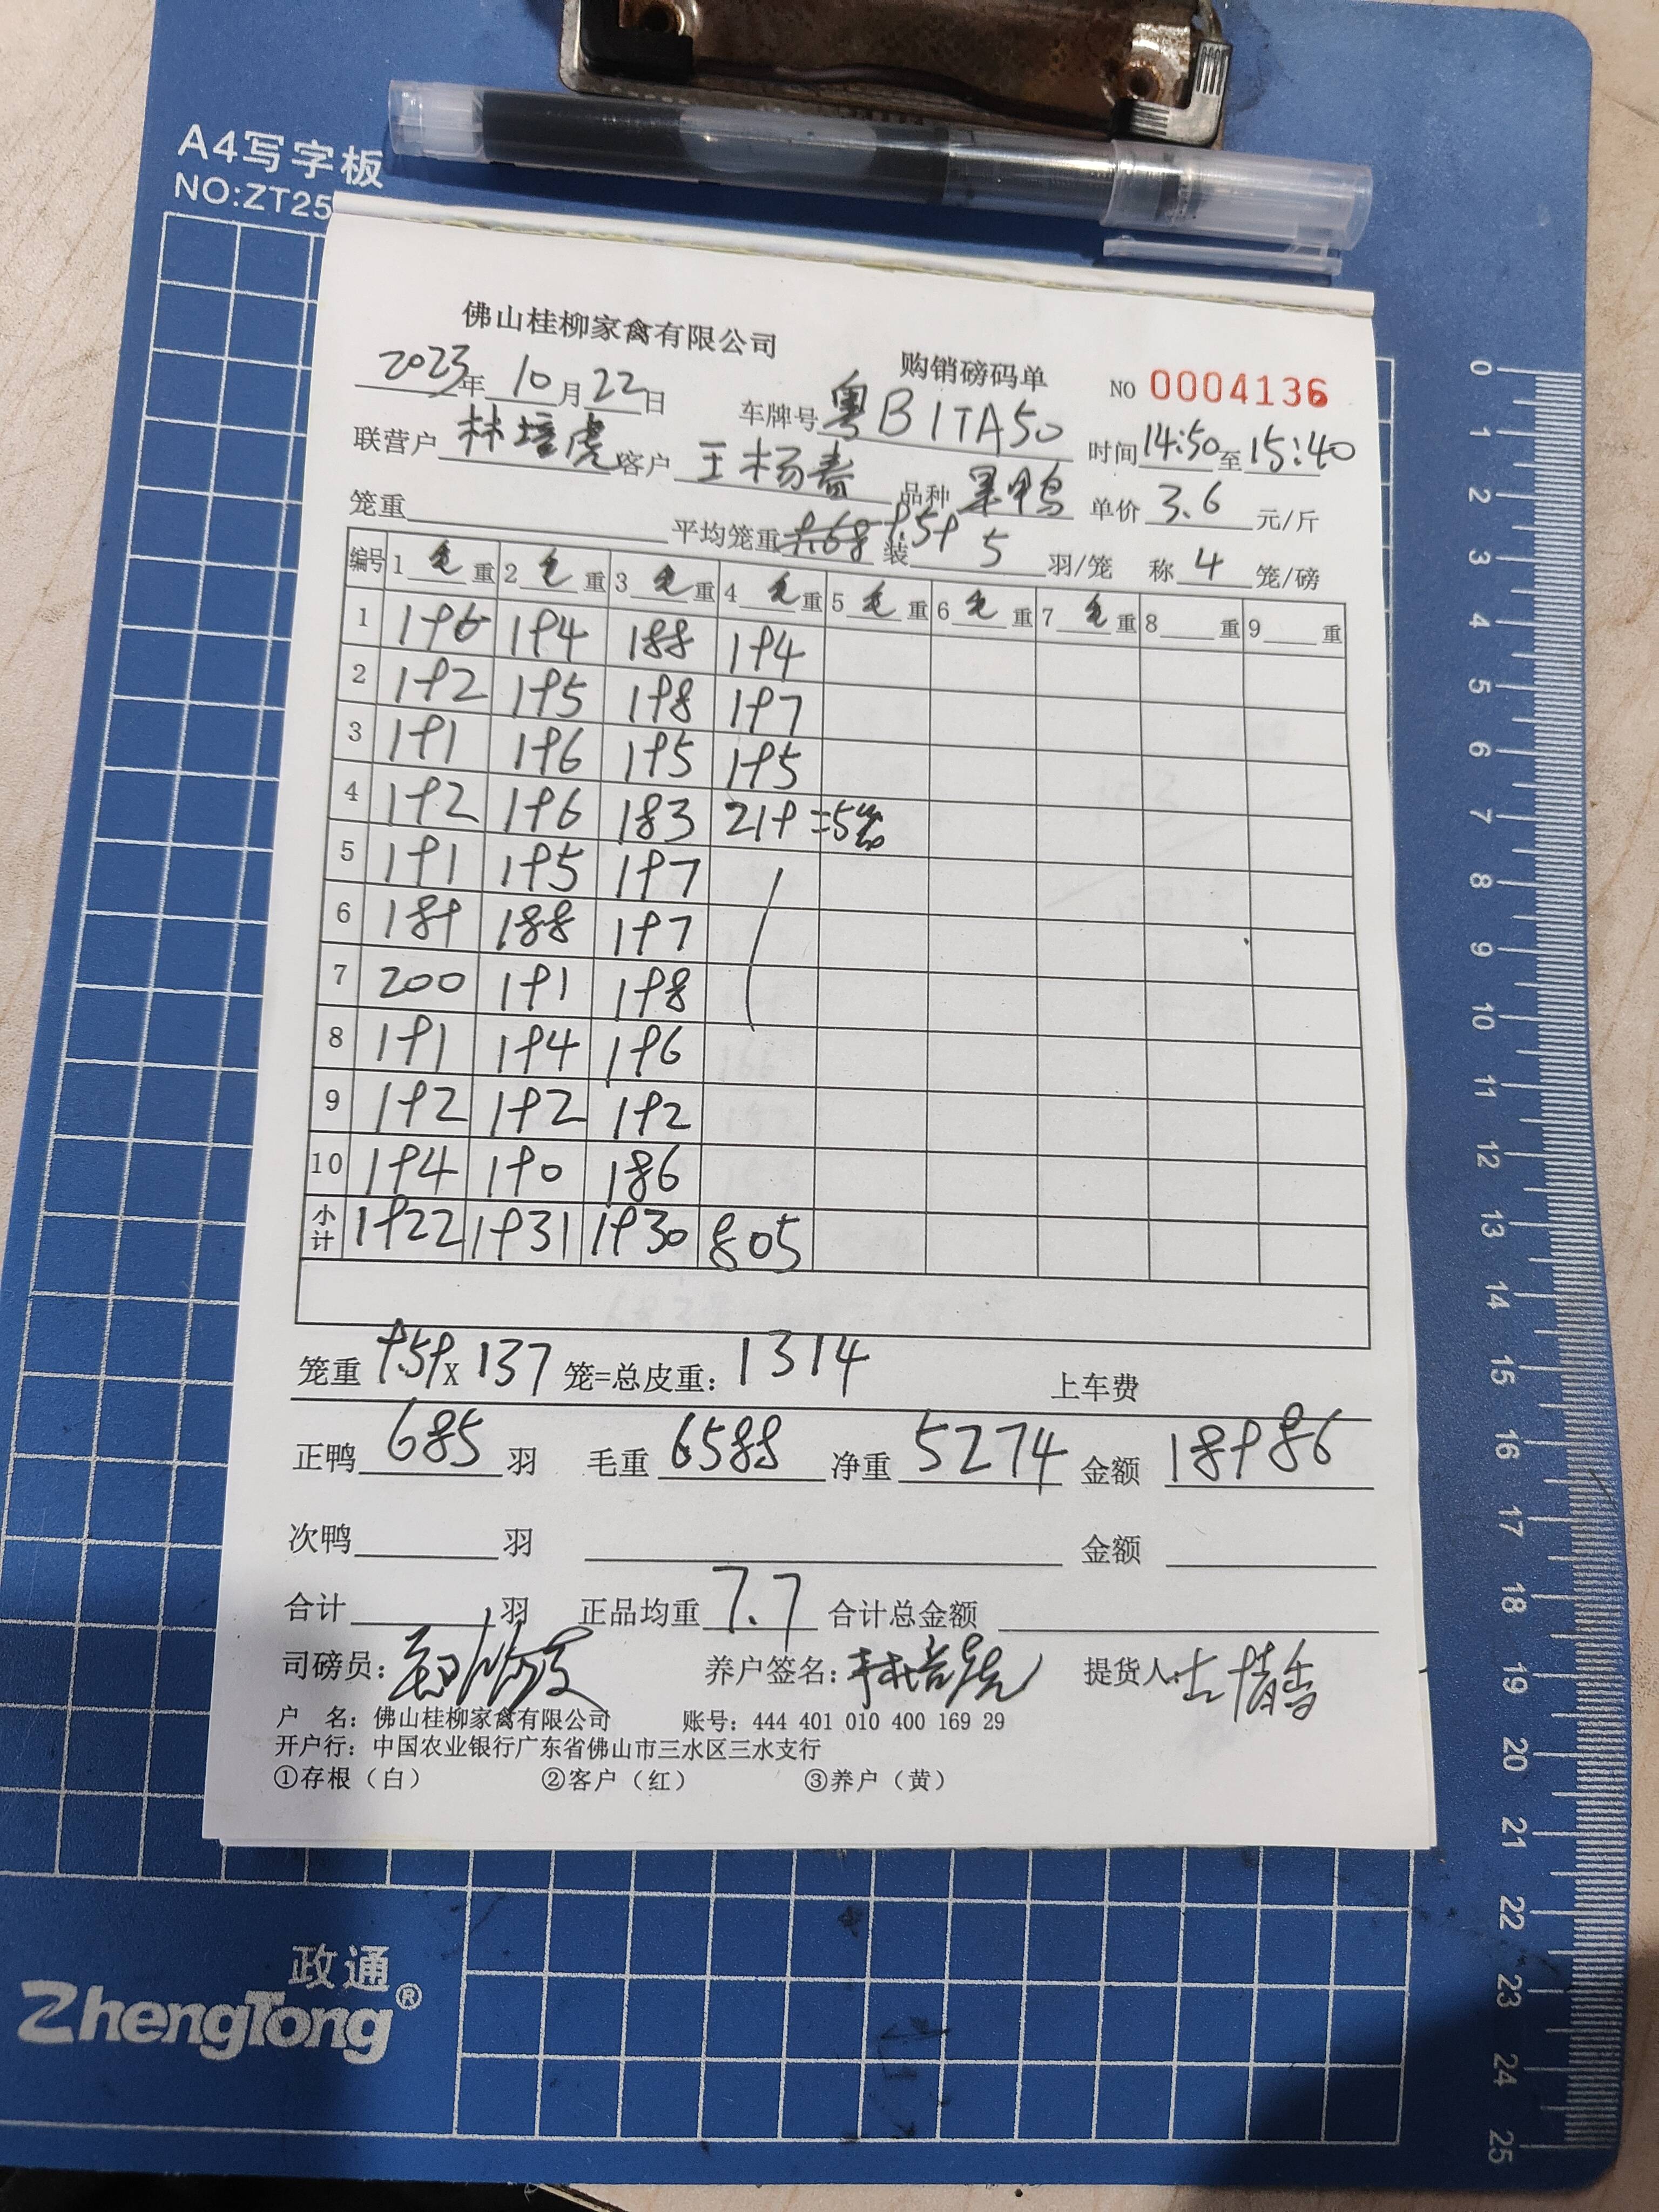 A4写字板
NO:ZT25
佛山桂柳家禽有限公司 购销磅码单 NO 0004136
2023年10月22日 车牌号粤B1TA50 时间14:50至15:40
联营户 林培虎 客户 王杨春 品种 果鸭 单价 3.6 元/斤
笼重 平均笼重 9.59 装 5 羽/笼 称 4 笼/磅
编号 1 毛 重 2 毛 重 3 毛 重 4 毛 重 5 毛 重 6 毛 重 7 毛 重 8 重 9 重
1 196 194 188 194
2 192 195 198 197
3 191 196 195 195
4 192 196 183 219 =5笼
5 191 195 197
6 189 188 197
7 200 191 198
8 191 194 196
9 192 192 192
10 194 190 186
小计 1922 1931 1930 805
笼重 9.59 x 137 笼=总皮重: 1314 上车费
正鸭 685 羽 毛重 6588 净重 5274 金额 18986
次鸭 羽 金额
合计 羽 正品均重 7.7 合计总金额
司磅员: 养户签名: 林培虎 提货人
户 名: 佛山桂柳家禽有限公司 账号: 444 401 010 400 169 29
开户行: 中国农业银行广东省佛山市三水区三水支行
①存根(白) ②客户(红) ③养户(黄)
政通
ZhengTong®
0 1 2 3 4 5 6 7 8 9 10 11 12 13 14 15 16 17 18 19 20 21 22 23 24 25